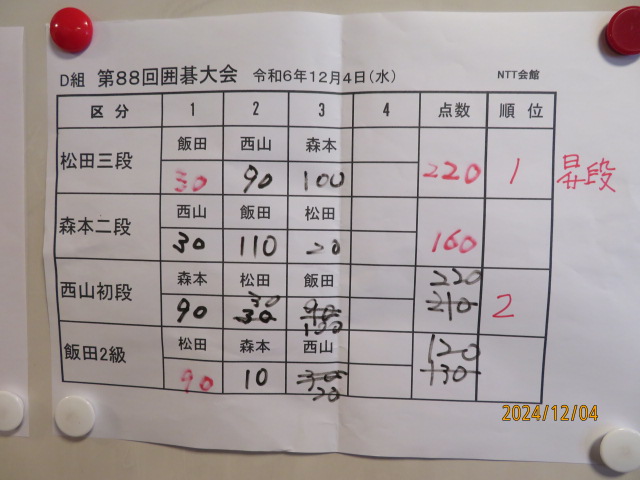 D組 第88回囲碁大会 令和6年12月4日(水) NTT会館
区分 1 2 3 4 点数 順位
松田三段 飯田 西山 森本
30 90 100 220 1 昇段
森本二段 西山 飯田 松田
30 110 20 160
西山初段 森本 松田 飯田 220
90 30 210 2
30 90
130
飯田2級 松田 森本 西山 120
90 10 30 130
20
2024/12/04